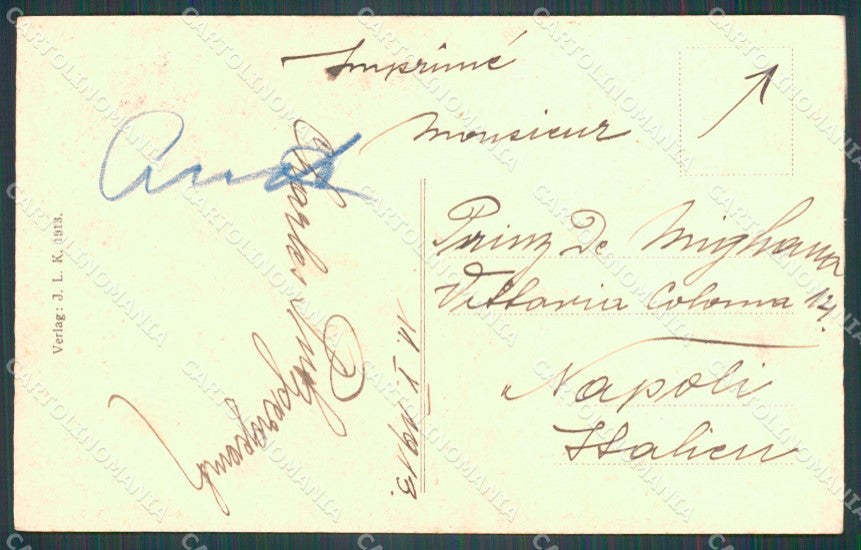 Imprimé
Monsieur
Prinz De Mighana
Vittoria Colonna 14.
Napoli
Italien
Charles
11. V. 1913.
Verlag: J. L. K. 1913.
CARTOLINOMANIA